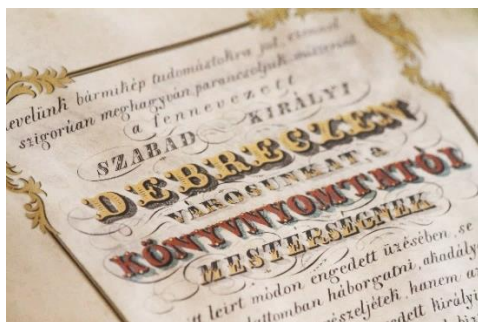 levelünk bármikép tudomástokra jut, ezennel
szigorúan meghagyván, parancsoljuk, miszerint
a fennevezett
SZABAD KIRÁLYI
DEBRECZEN
VÁROSUNKAT, A
KÖNYVNYOMTATÓI
MESTERSÉGNEK
itt leirt módon engedett üzésében, se
háborgatni, akadály
hanem az
királyi